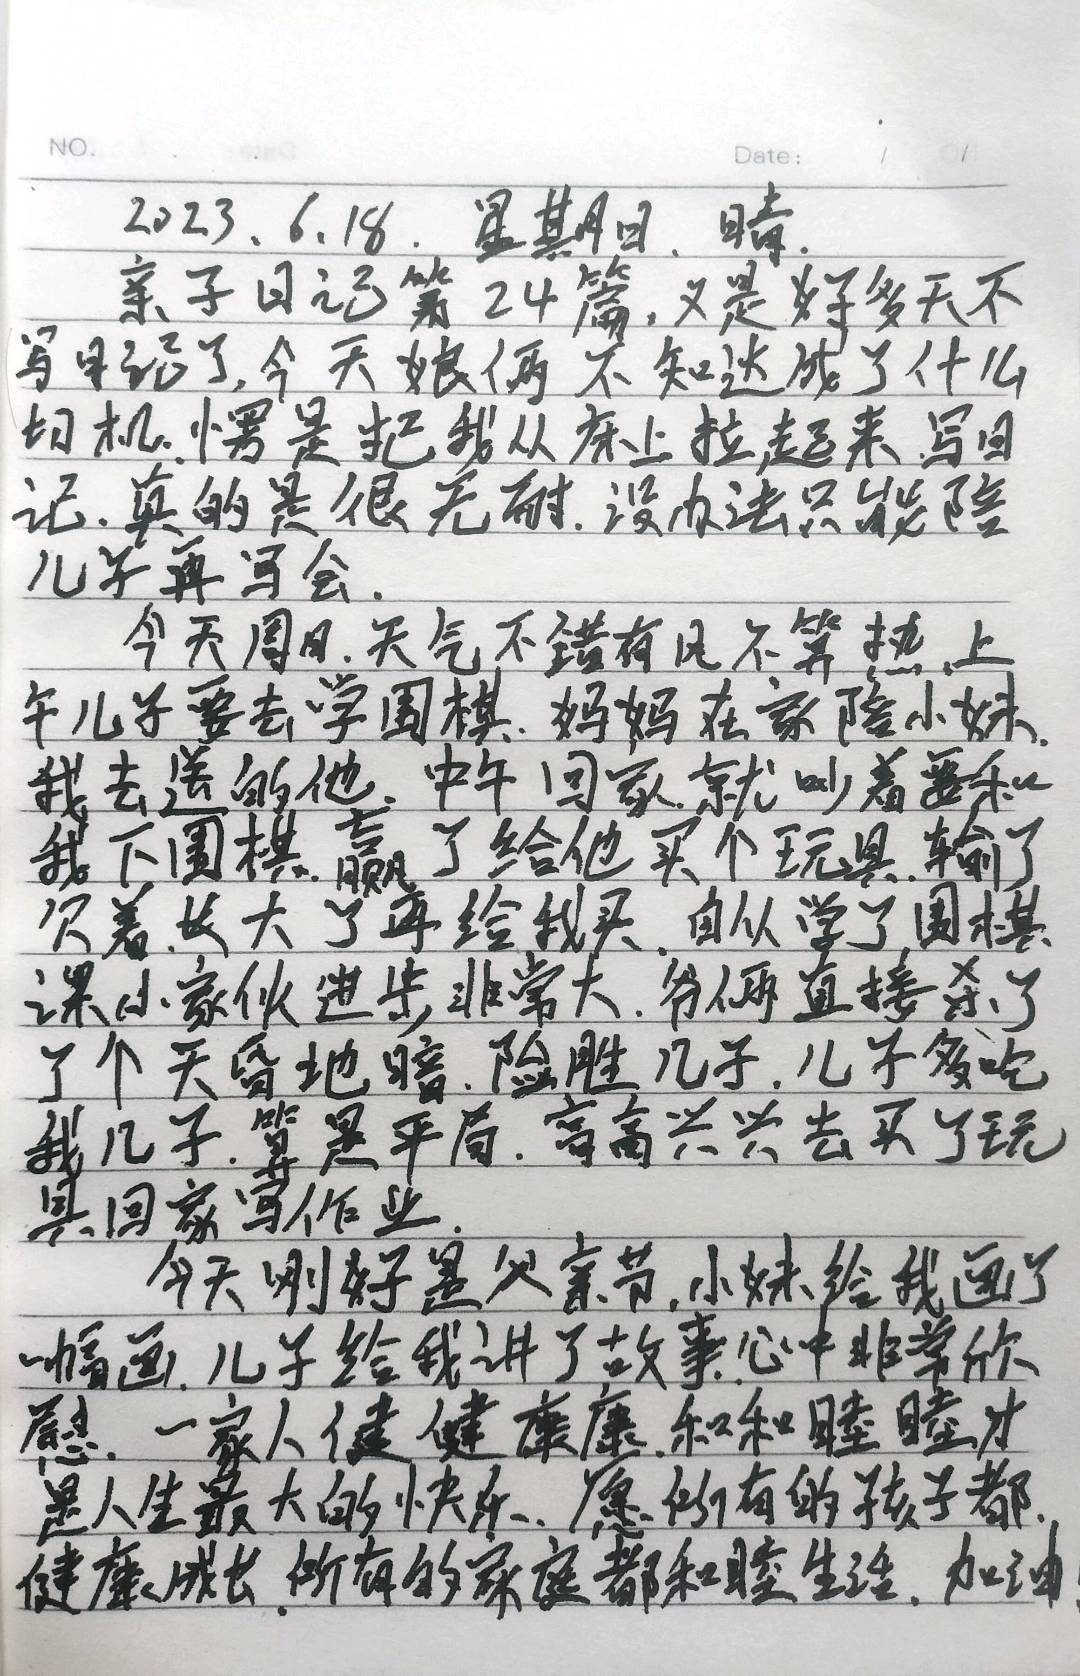 NO.
Date: / /
2023.6.18. 星期日.晴.
亲子日记第24篇,又是好多天不
写日记了,今天娘俩不知达成了什么
切机.愣是把我从床上拉起来.写日
记.真的是很无耐.没办法只能陪
儿子再写会.
今天周日.天气不错有风不算热.上
午儿子要去学围棋.妈妈在家陪小妹.
我去送的他.中午回家.就吵着要和
我下围棋.赢了给他买个玩具.输了
欠着.长大了再给我买.自从学了围棋
课小家伙进步非常大.爷俩直接杀了
了个天昏地暗.险胜几子.儿子多吃
我几子.算是平局.高高兴兴去买了玩
具.回家写作业.
今天刚好是父亲节.小妹给我画了
一幅画.儿子给我讲了故事.心中非常欣
慰.一家人健健康康.和和睦睦才
是人生最大的快乐.愿所有的孩子都.
健康成长.所有的家庭都和睦生活.加油!